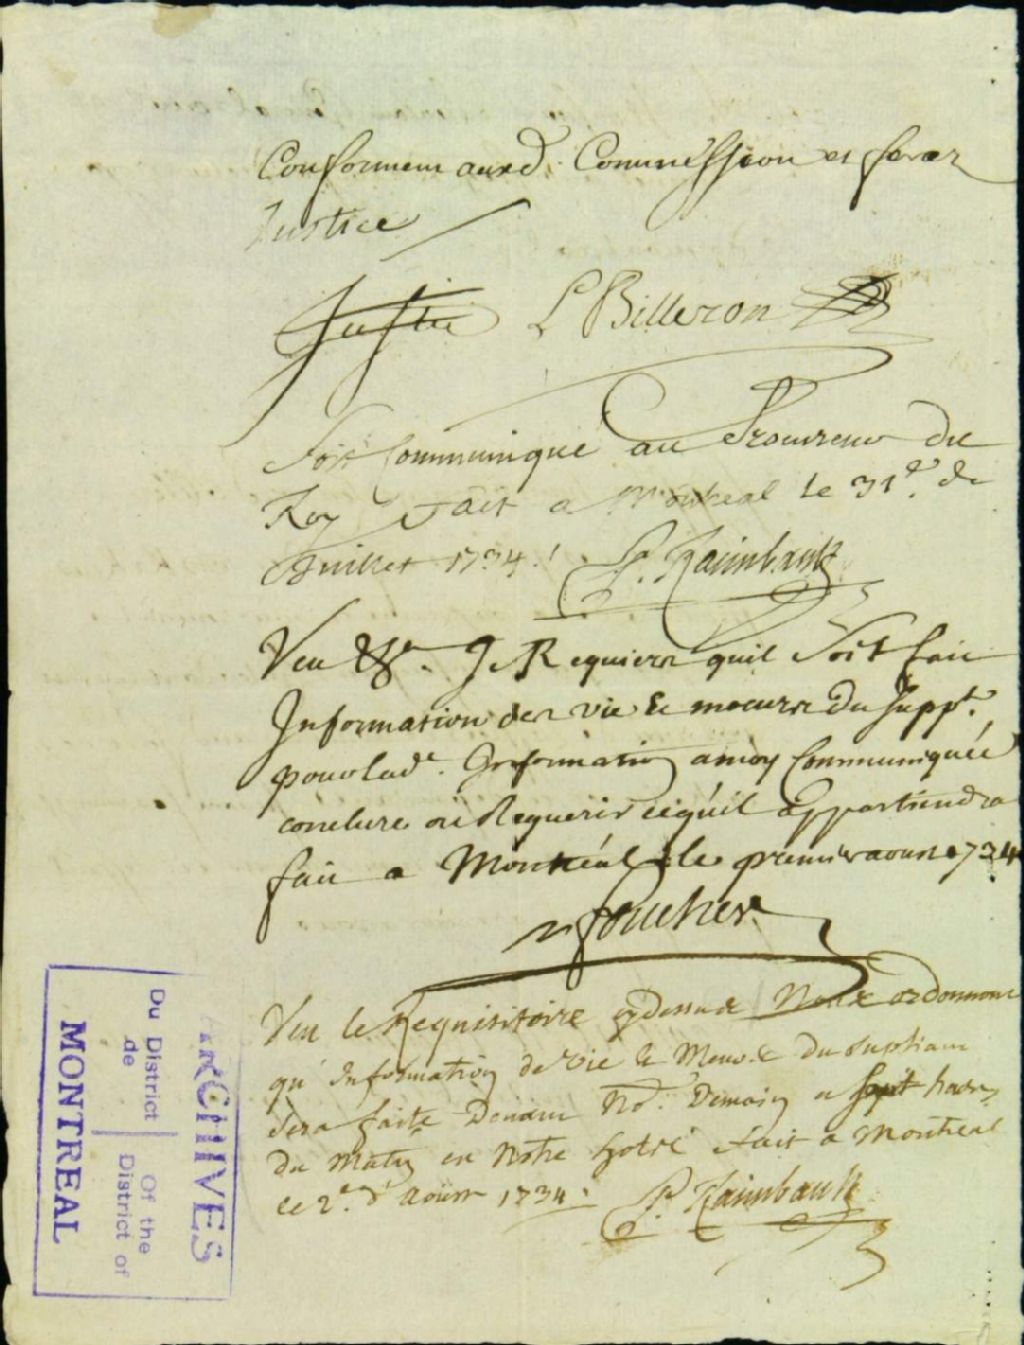 Conformem auxd. Commission et ferez
Justice
Justice L Billeron
Soit Communiqué au Procureur du
Roy fait a Montreal le 31e. de
Juillet 1734. P. Raimbault
Veu &c. Je Requiers quil soit fait
Information des vie & moeurs du supplt.
pour lade. Information a moy Communiquée
conclure ou Requerir ce quil appartiendra
fait a Montréal le premier aoust 1734
foucher
Veu le Requisitoire cy dessus Nous ordonnons
qu' Information de vie & Meurs du supliant
sera faite Devant No. Demain a sept heures
du Matin en Notre hotel fait a Montreal
ce 2e. d'Aoust 1734. P. Raimbault
ARCHIVES
Du District Of the
de District of
MONTREAL